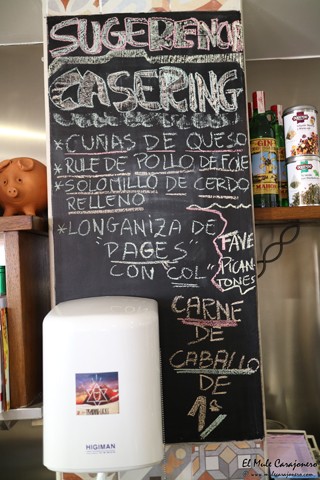 SUGERENCI
CASERING
*CUÑAS DE QUESO
*RULE DE POLLO DE FCIE
*SOLOMILLO DE CERDO
RELLENO
*LONGANIZA DE
"PAGES"
CON "COL"
FAVE
PICAN
TONES
CARNE
DE
CABALLO
DE
1ª
HIGIMAN
El Mule Carajonero